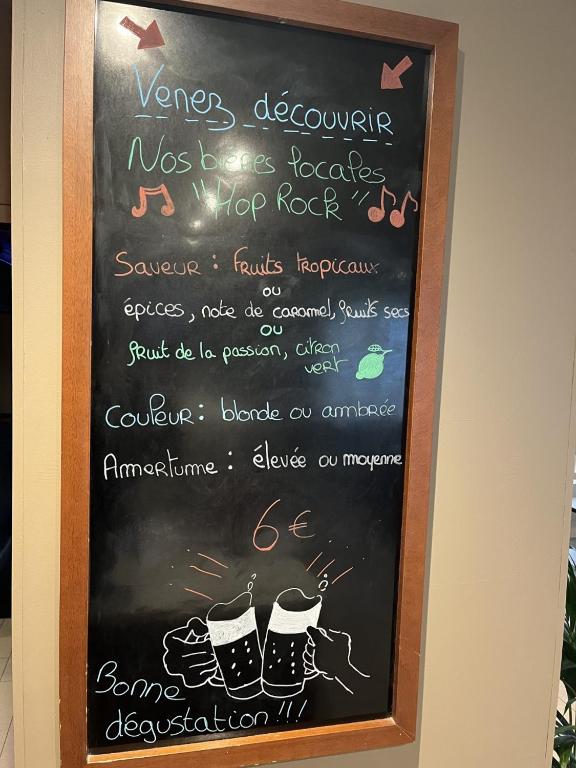 Venez découvrir
Nos bières locales
"Hop Rock"
Saveur : fruits tropicaux
ou
épices, note de caramel, fruits secs
ou
fruit de la passion, citron
vert
Couleur : blonde ou ambrée
Amertume : élevée ou moyenne
6 €
Bonne
dégustation !!!